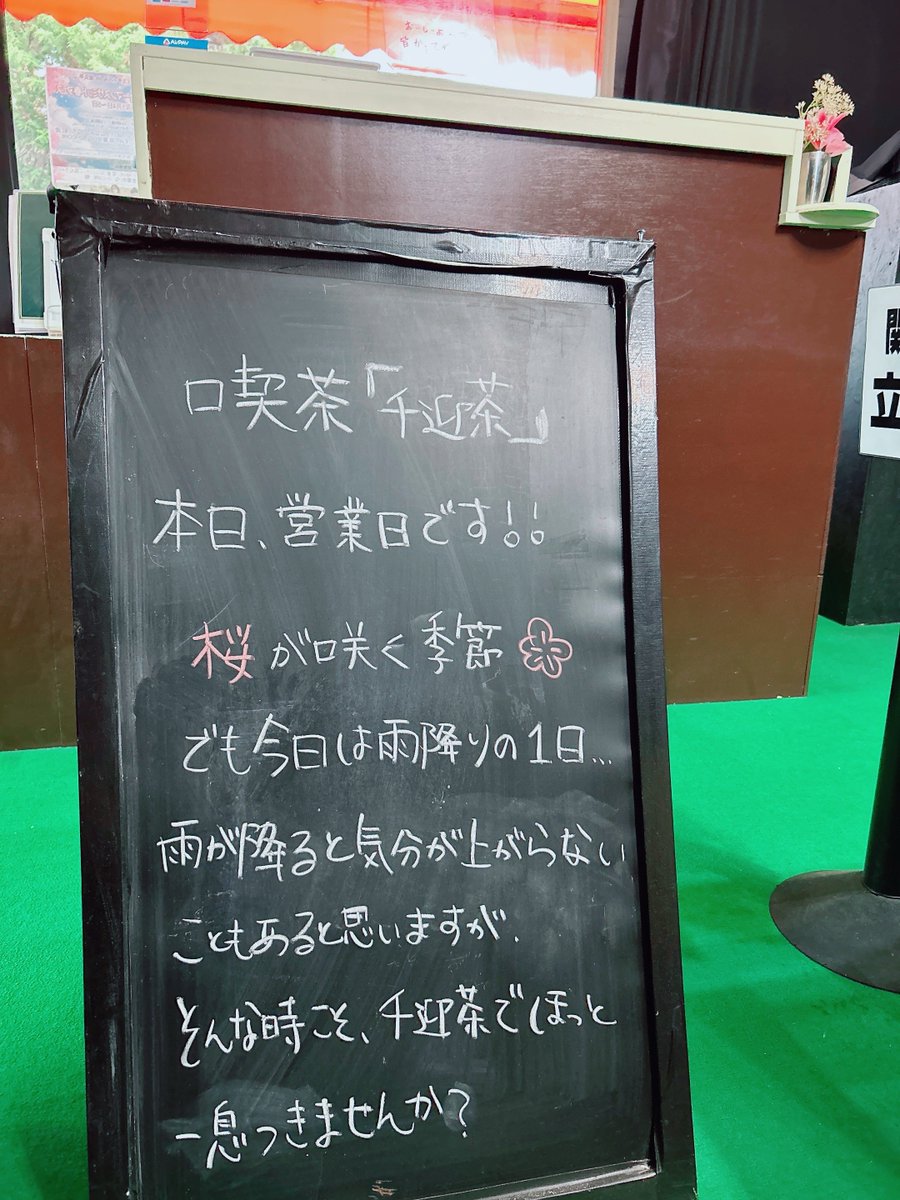 喫茶「千迎茶」
本日、営業日です!!
桜が咲く季節
でも今日は雨降りの1日...
雨が降ると気分が上がらない
こともあると思いますが、
そんな時こそ、千迎茶でほっと
一息つきませんか?
立